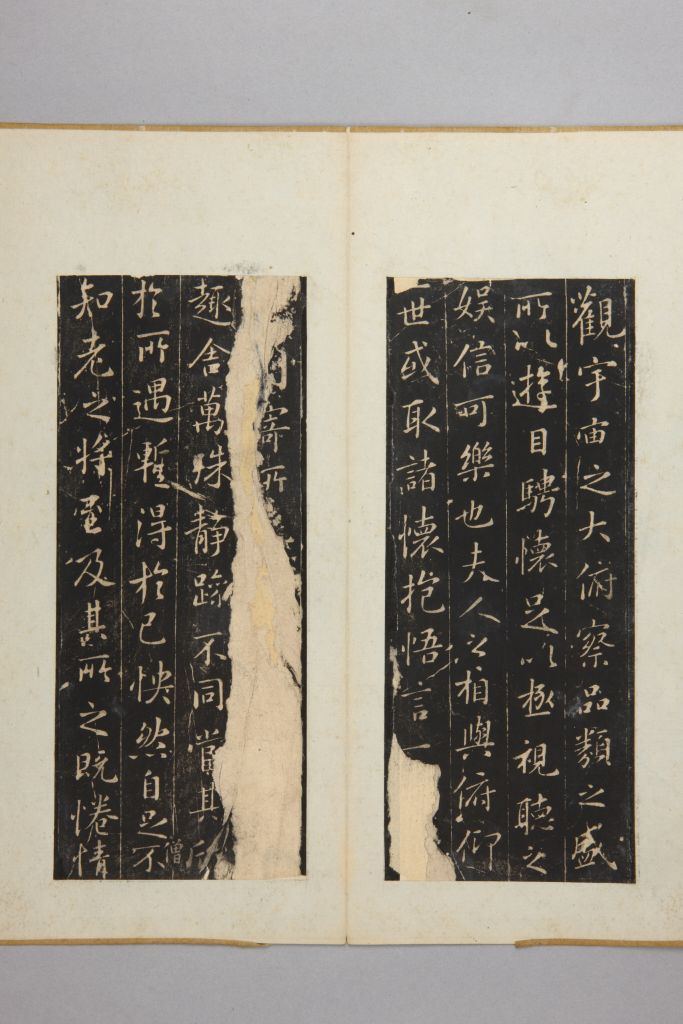 觀宇宙之大俯察品類之盛
所以遊目騁懷足以極視聽之
娛信可樂也夫人之相與俯仰
世或取諸懷抱悟言一
寄所
趣舍萬殊靜躁不同當其
於所遇暫得於己快然自足不
僧
知老之將至及其所之既惓情